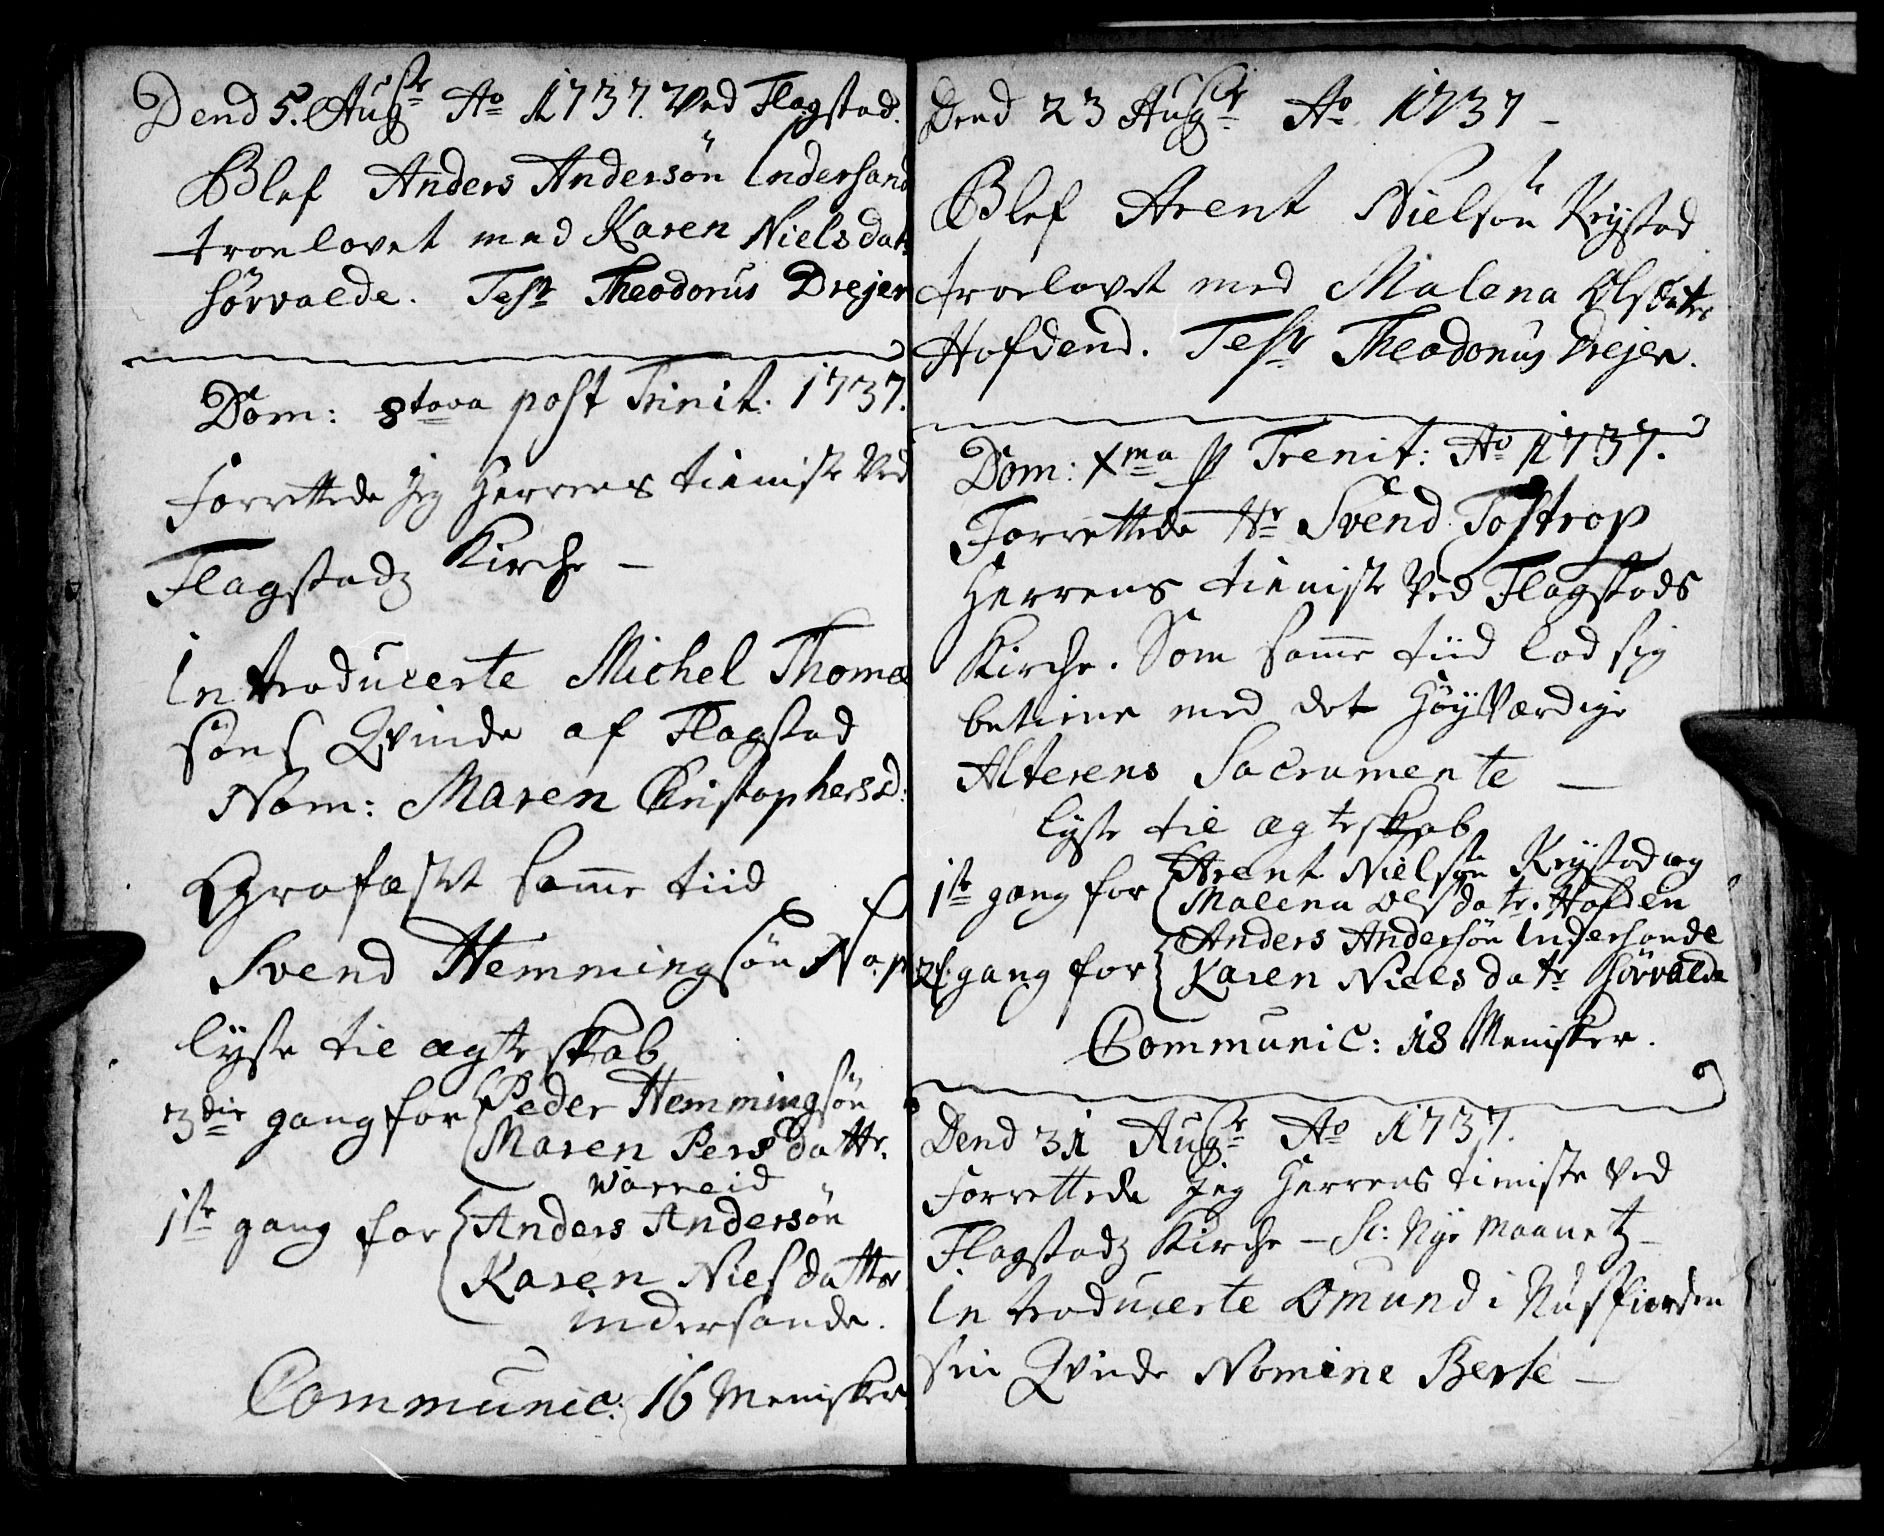 Dend 5. Augstr Ao 1737. Ved Flagstad.
Blef Anders Andersön Indersand
troelovet med Karen Nielsdatr
Hörvalde. Testr Theodorus Drejer
Dom: 8tava post Trinit: 1737.
Forrettede Jeg Herrens tieniste Ved
Flagstadz Kirche –
Introducerte Michel Thomæ
söns Qvinde af Flagstad
Nom: Maren Christophersd:
Grafæstet samme tiid
Svend Hemmingsön Nap
lyste til ægteskab
3die gang for Peder Hemmingsön
Maren Persdattr.
Wareid
1ste gang for Anders Andersön
Karen Nielsdatter
indersande.
Communic: 16 Menisker
Dend 23 Augstr Ao 1737 –
Blef Arent Nielsön Krystad
troelovet med Malena Olsdatr
Hofdend. Testr Theodorus Drejer.
Dom: Xma p Trenit: Ao 1737.
Forrettede Hr Svend Tostrop
Herrens tieniste Ved Flagstads
Kirche. Som samme tiid lod sig
betiene med det HöyVærdige
Alterens Sacramente –
lyste til ægteskab
1ste gang for Arent Nielsön Krystad og
Malena Olsdatr. Hofden
2. gang for Anders Andersön Indersande
Karen Nielsdatr Hörvalde
Communic: 18 Menisker.
Dend 31 Augstr Ao 1737.
Forrettede Jeg Herrens tieniste Ved
Flagstadz Kirche – Sc: Nye Maanetz –
Introducerte Omund i Nusfiorden
sin Qvinde Nomine Berte –